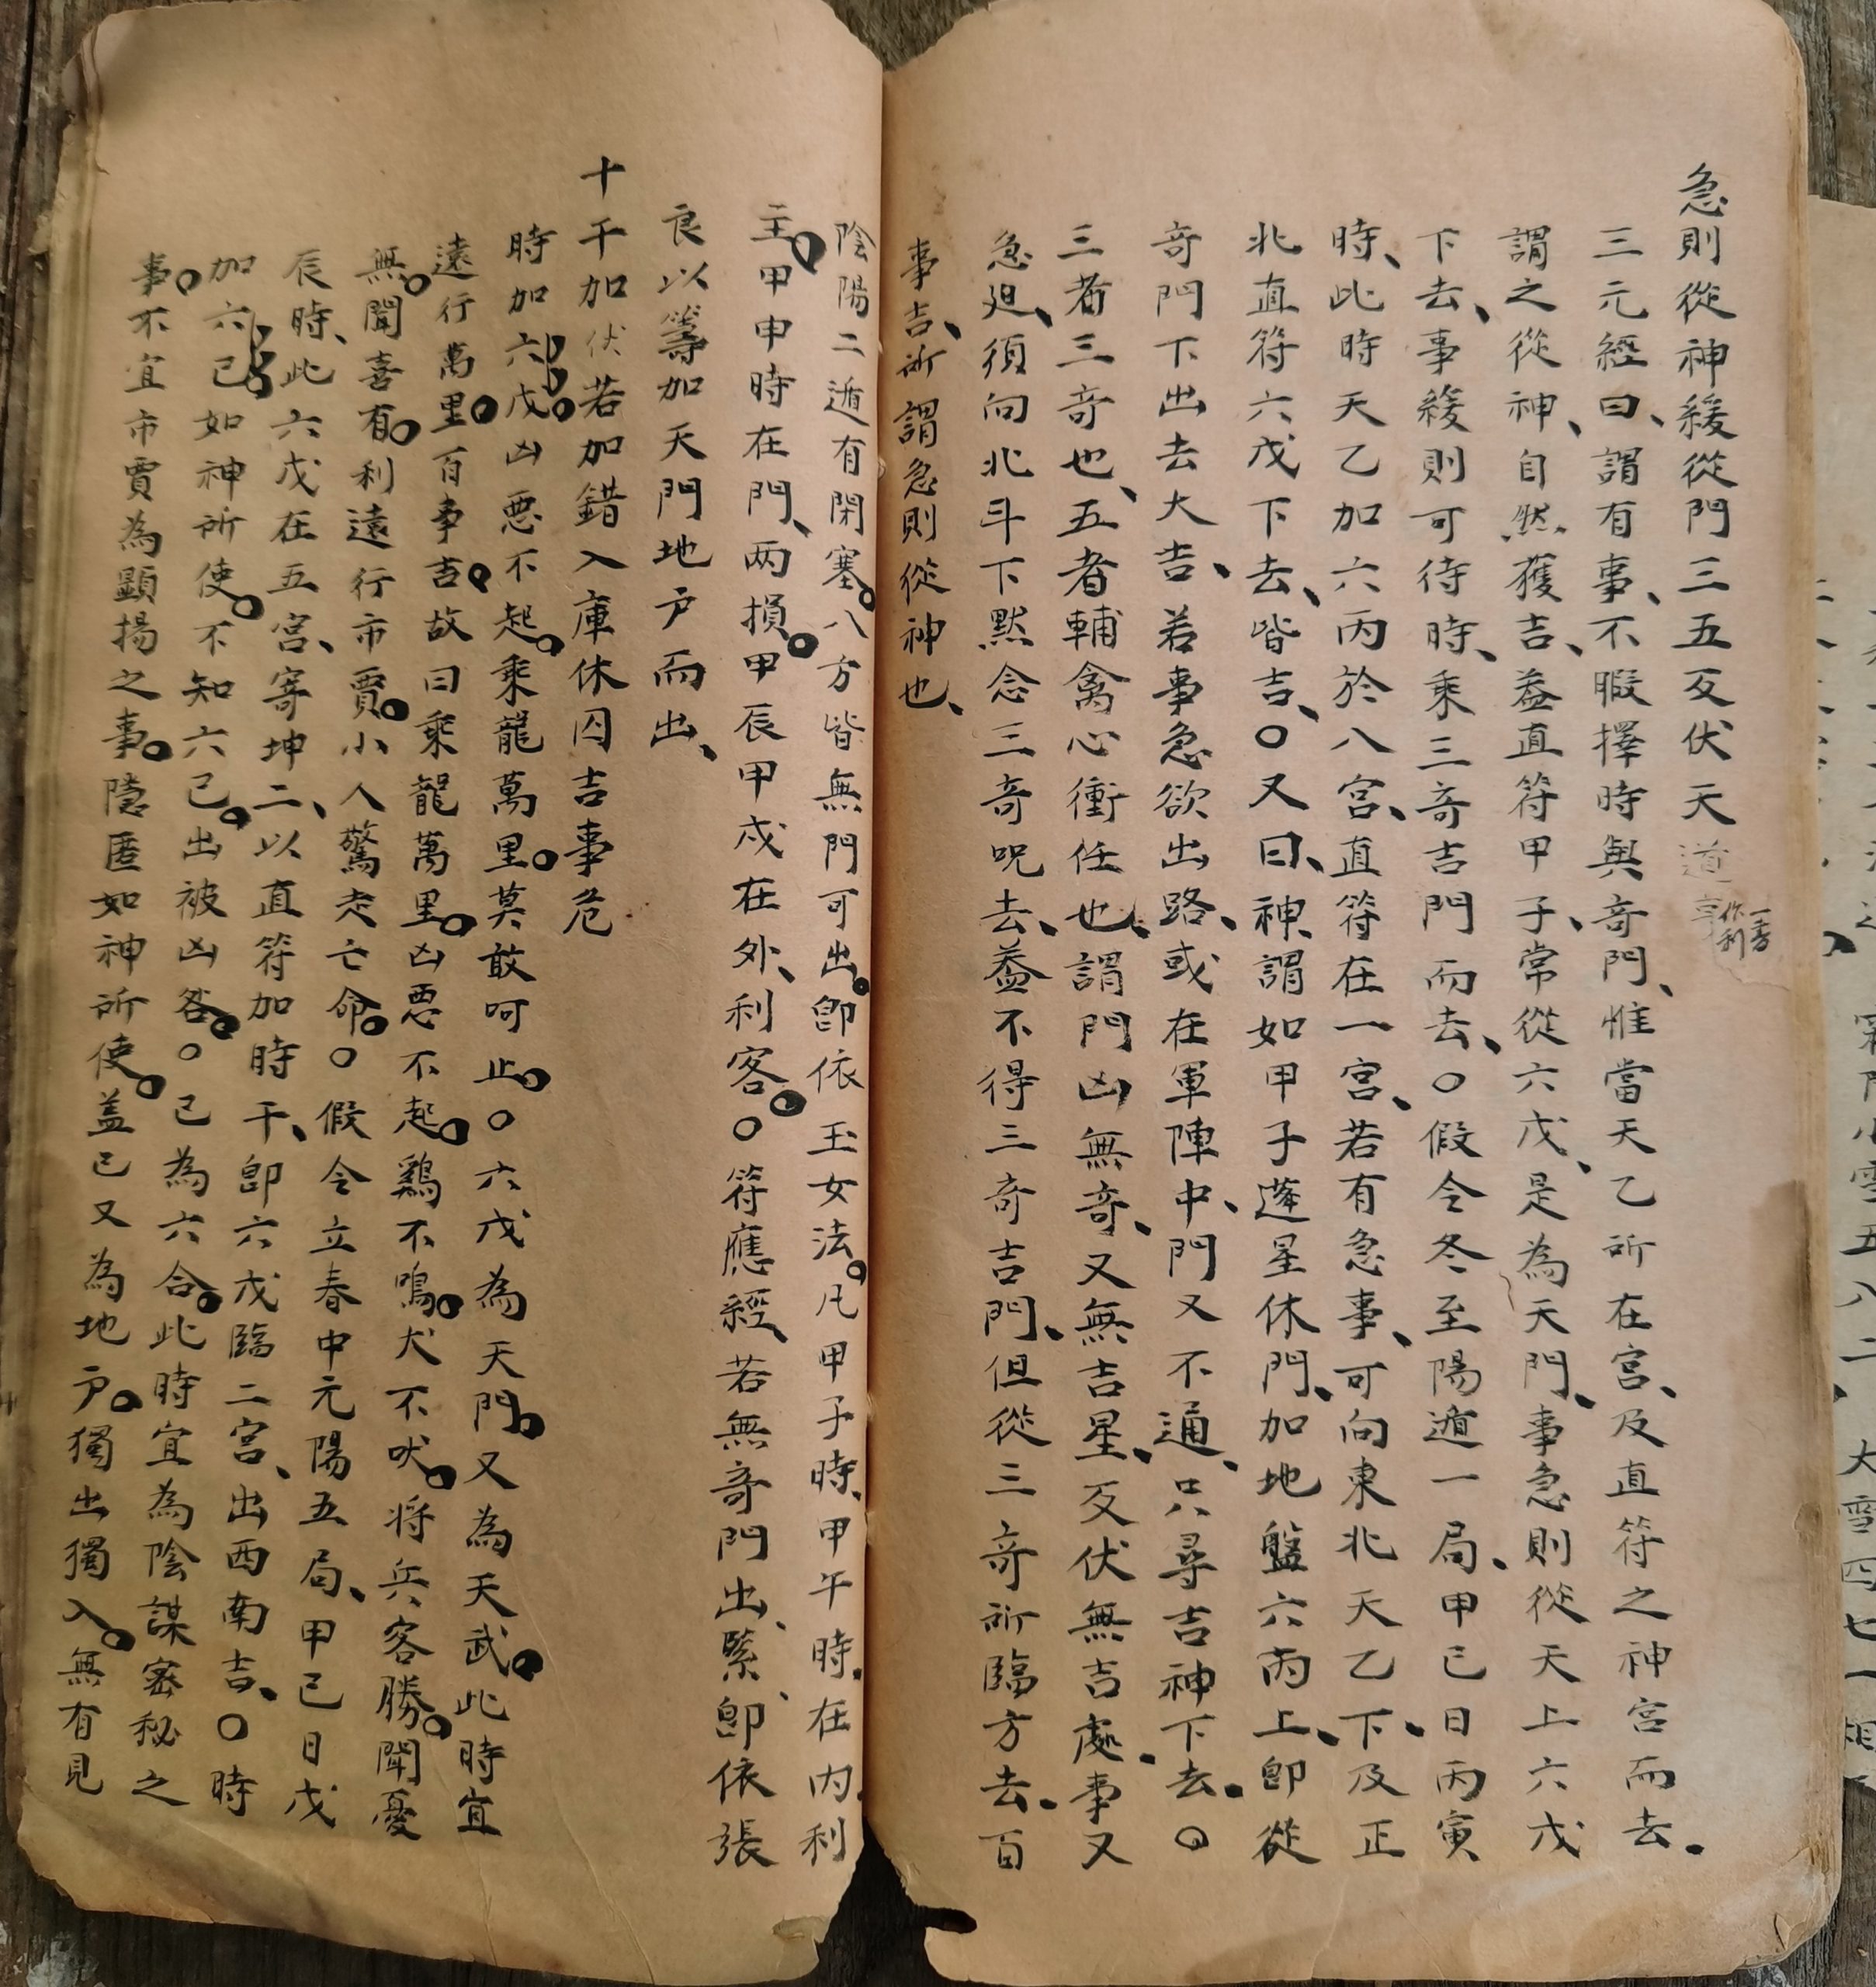 急則從神緩從門三五反伏天道亨
一書作利
三元經曰、謂有事、不暇擇時與奇門、惟當天乙所在宮、及直符之神宮而去、
謂之從神、自然獲吉、葢直符甲子、常從六戊、是為天門、事急則從天上六戊
下去、事緩則可待時、乘三奇吉門而去、〇假令冬至陽遁一局、甲己日丙寅
時、此時天乙加六丙於八宮、直符在一宮、若有急事、可向東北天乙下、及正
北直符六戊下去、皆吉、〇又曰、神謂如甲子蓬星休門、加地盤六丙上、卽從
奇門下出去大吉、若事急欲出路、或在軍陣中、門又不通、只尋吉神下去、〇
三者三奇也、五者輔禽心衝任也、謂門凶無奇、又無吉星、反伏無吉處、事又
急廹、須向北斗下默念三奇呪去、葢不得三奇吉門、但從三奇所臨方去、百
事吉、所謂急則從神也、
陰陽二遁有閉塞。八方皆無門可出。卽依玉女法。凡甲子時、甲午時、在內、利
主。甲申時在門、两損。甲辰甲戍在外、利客。〇符應經、若無奇門出、緊、卽依張
良以籌加天門地户而出、
十干加伏若加錯入庫休囚吉事危
時加六戊。凶惡不起。乘龍萬里。莫敢呵止。〇六戊為天門。又為天武。此時宜
遠行萬里。百事吉。故曰乘龍萬里。凶惡不起。鷄不鳴。犬不吠。将兵客勝。聞憂
無。聞喜有。利遠行市賈。小人驚走亡命。〇假令立春中元陽五局、甲己日戊
辰時、此六戊在五宮、寄坤二、以直符加時干、卽六戊臨二宮、出西南吉、〇時
加六己如神所使。不知六己。出被凶咎。〇己為六合。此時宜為陰謀密秘之
事。不宜市賈為顯揚之事。隱匿如神所使。盖己又為地户。獨出獨入。無有見